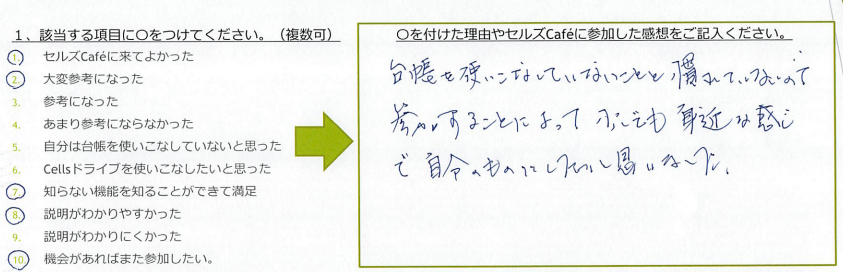 1、該当する項目に○をつけてください。（複数可）
1. セルズCaféに来てよかった
2. 大変参考になった
3. 参考になった
4. あまり参考にならなかった
5. 自分は台帳を使いこなしていないと思った
6. Cellsドライブを使いこなしたいと思った
7. 知らない機能を知ることができて満足
8. 説明がわかりやすかった
9. 説明がわかりにくかった
10. 機会があればまた参加したい。
○を付けた理由やセルズCaféに参加した感想をご記入ください。
台帳を使いこなしていないことと慣れていないので
参加することによって少しでも身近な感じ
で自分のものにしたいと思いました。